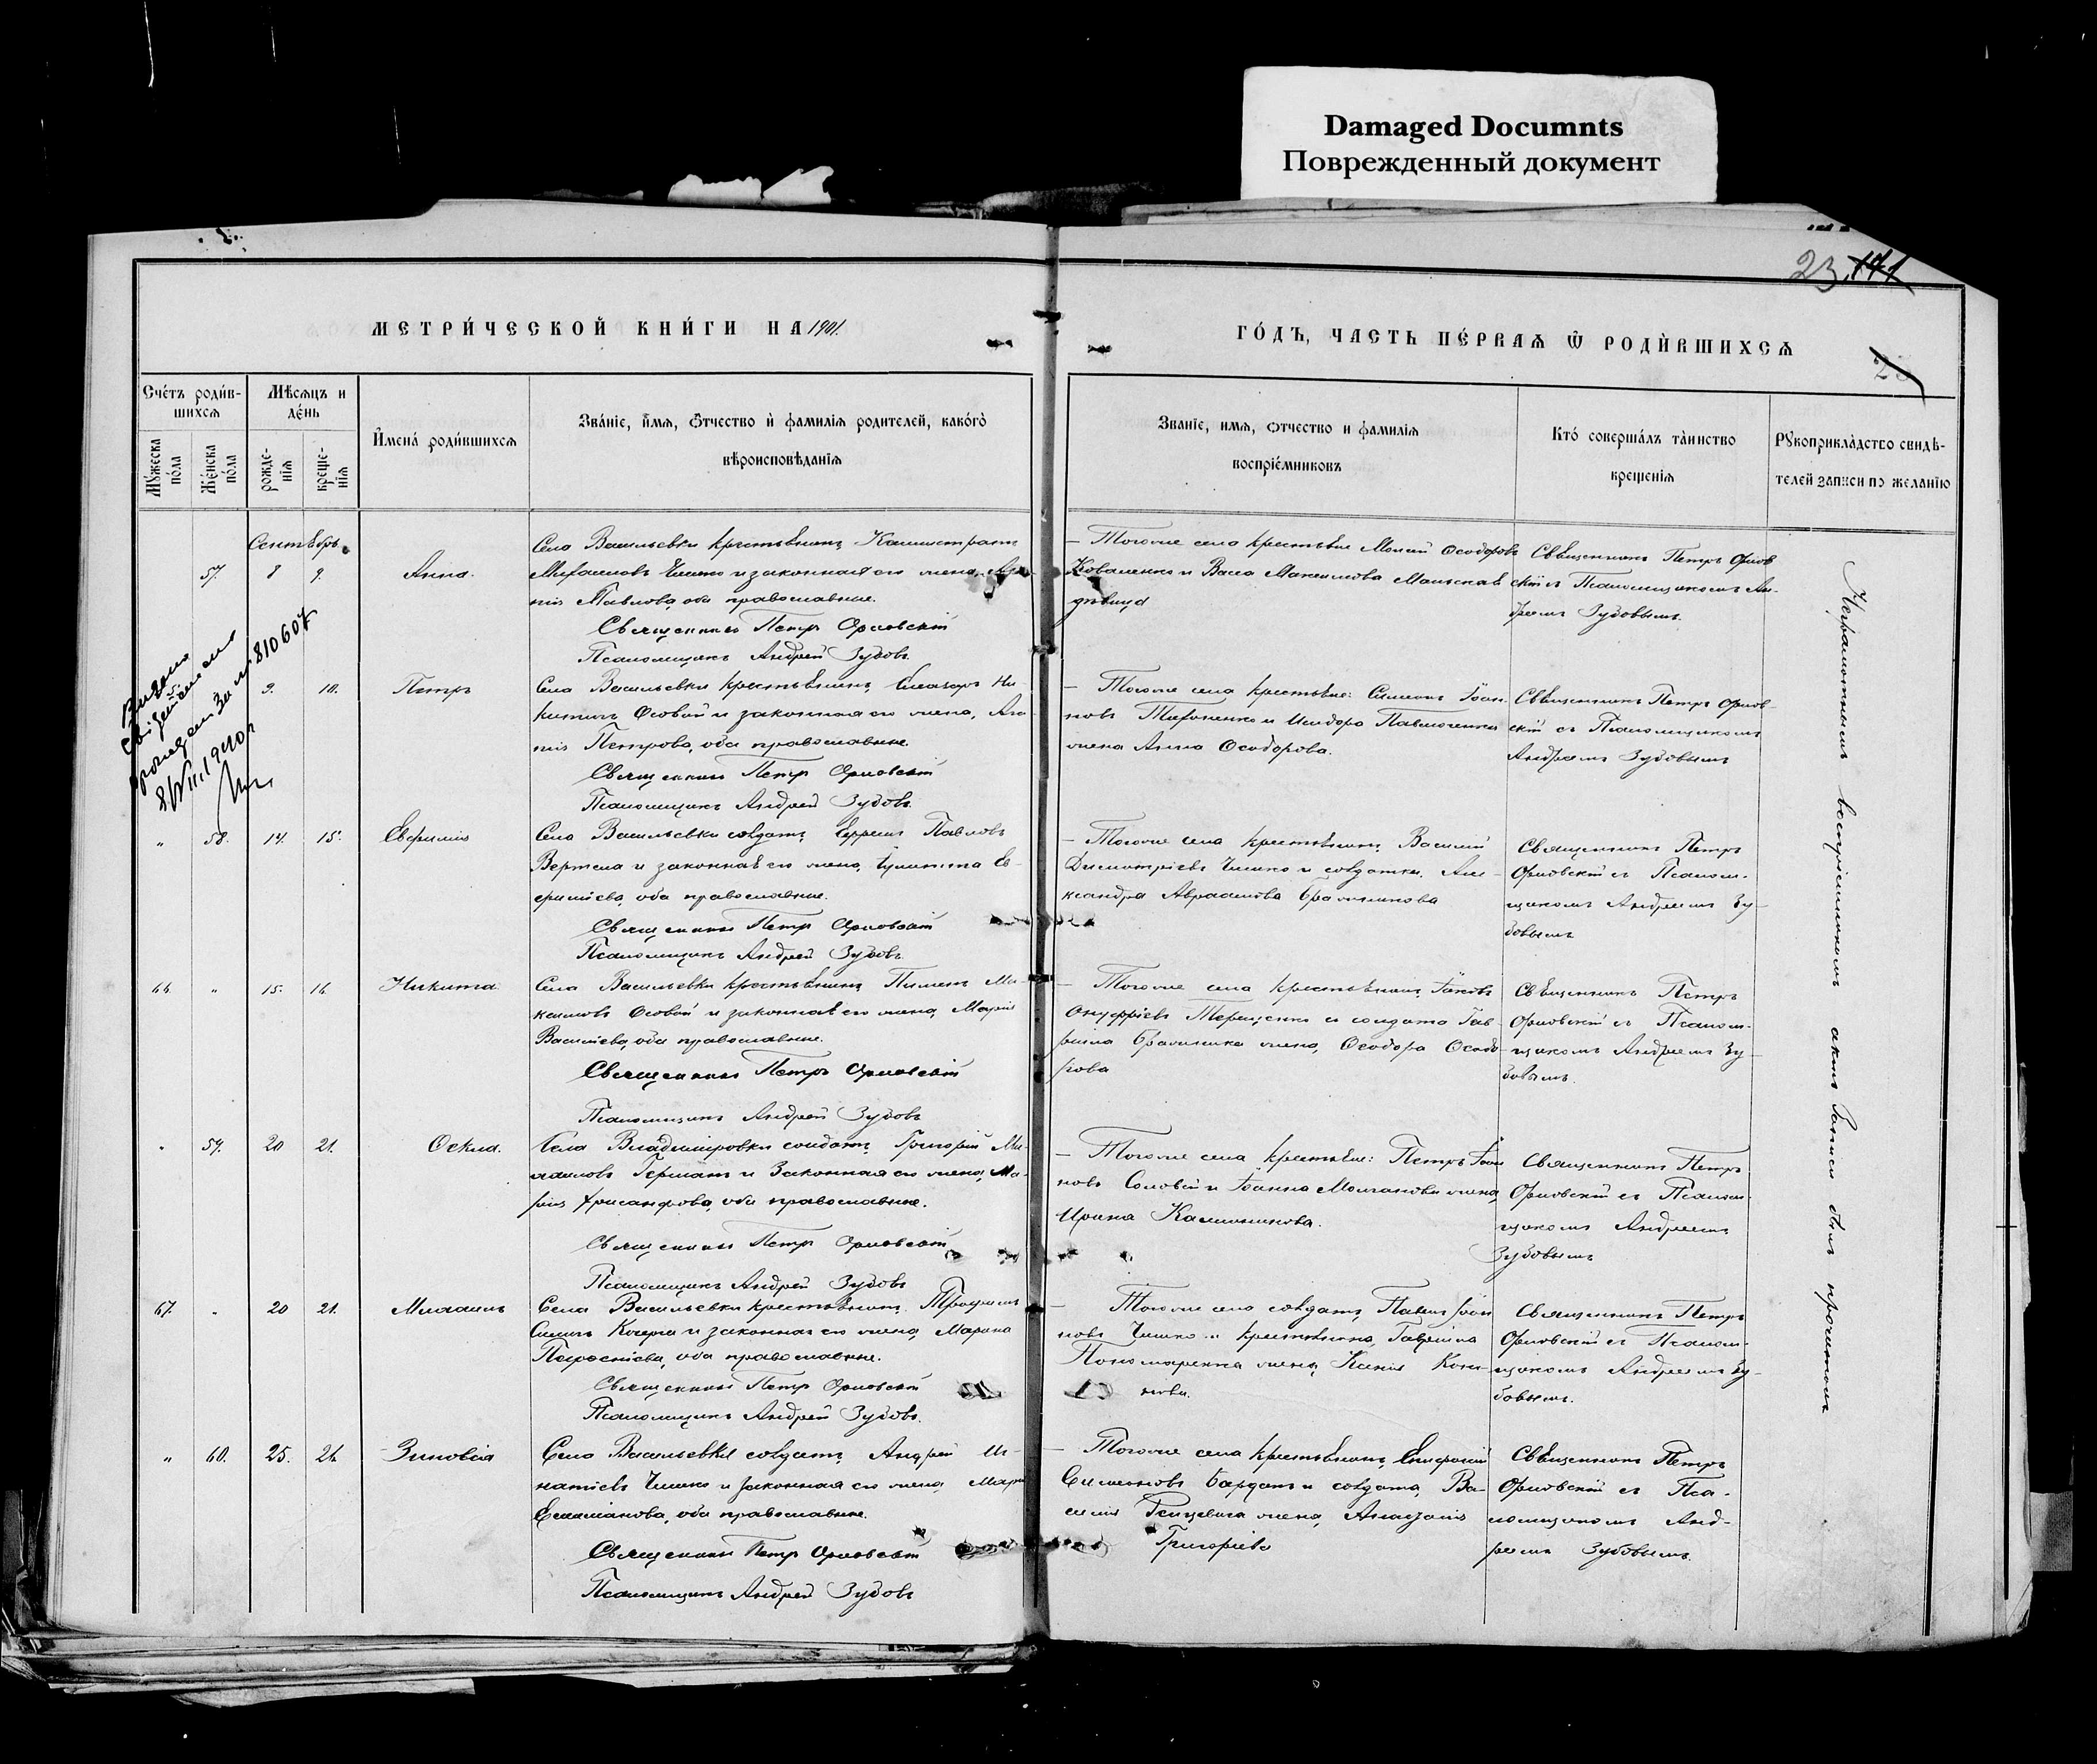 Damaged Documnts
Поврежденный документ
23 171
МЕТРИ́ЧЕСКОЙ КНИ́ГИ НА 1901.
ГО́ДЪ, ЧАСТЬ ПЕ́РВАѦ Ѡ҆ РОДИ́ВШИХСѦ
Счéтъ роди́в-
шихсѧ
Мѣ́сѧцъ и
дéнь
И҆менá роди́вшихсѧ
Звáнїе, и҆́мѧ, ѻ҆́тчество и҆ фамилїѧ родителей, какóгѡ
вѣроисповѣ́данїѧ
Званїе, имѧ, ѻтчество и фамилїѧ
воспрїéмниковъ
Ктó совершáлъ тàинство
крещéнїѧ
Рꙋкоприклáдство свидѣ́-
телей записи по желанїю
Мꙋ́жеска
пóла
Же́нска
пóла
рожде-
нїѧ
креще-
нїѧ
Сентѣбрь.
57. 8 9. Анна.
Села Васильевки крестьѣнинъ, Калистратъ
Михаиловъ Чишко и законная его жена,
Павлова, оба православные.
Священникъ Петръ Орловскій
Псаломщикъ Андрей Зубовъ.
– Тогоже села крестьѣне Моисей Ѳеодоровъ
Коваленко и Васса Максимова
дѣвица
Свѣщенникъ Петръ Орлов
скій съ Псаломщикомъ Ан-
дреемъ Зубовымъ.
за № 810607
1940г
9. 10. Петръ
Села Васильевки крестьѣнинъ, Елеазаръ Ни-
китинъ Особой и законная его жена,
Петрова, оба православные.
Священникъ Петръ Орловскій
Псаломщикъ Андрей Зубовъ.
– Тогоже села крестьѣне: Симеонъ Іоан-
новъ Тихоненко и Исидора Павлюченка
жена Анна Ѳеодорова.
Свѣщенникъ Петръ Орлов-
скій съ Псаломщикомъ
Андреемъ Зубовымъ
„ 58. 14. 15. Евфимія
Села Васильевки солдатъ, Ефремъ Павловъ
Вертела и законнаѣ его жена, Іулитта Ев-
фиміева, оба православные.
Священникъ Петръ Орловскій
Псаломщикъ Андрей Зубовъ
– Тогоже села крестьѣнинъ, Василій
Димитріевъ Чишко и солдатка, Але-
ксандра Авраамова
Священникъ Петръ
Орловскій съ Псалом-
щикомъ Андреемъ Зу-
бовымъ
66. „ 15. 16. Никита
Села Васильевки крестьѣнинъ, Пименъ Ма-
ксимовъ Особой и законнаѣ его жена, Марія
Васильева, оба православные.
Священникъ Петръ Орловскій
Псаломщикъ Андрей Зубовъ
– Тогоже села крестьѣнинъ, Іаковъ
Онуфріевъ Терещенко и солдата Гав-
рила жена, Ѳеодора Ѳеодо-
рова
Свѣщенникъ Петръ
Орловскій съ Псалом-
щикомъ Андреемъ Зу-
бовымъ.
„ 59. 20 21. Ѳекла.
Села Владиміровки солдатъ, Григорій Ми-
хаиловъ Германъ и Законная его жена, Ма-
рія Хрисанфова, оба православные.
Священникъ Петръ Орловскій
Псаломщикъ Андрей Зубовъ
– Тогоже села крестьѣне: Петръ Іоан
новъ Соловей и Іоанна Молчанова жена,
Ирина Каллиникова.
Священникъ Петръ
Орловскій съ Псалом-
щикомъ Андреемъ
Зубовымъ
67. „ 20 21. Михаилъ
Села Васильевки крестьѣнинъ, Трофимъ
Кочерга и законная его жена, Марина
оба православные.
Священникъ Петръ Орловскій
Псаломщикъ Андрей Зубовъ.
– Тогоже села солдатъ, Павелъ Іоан
новъ Чишко и крестьѣнина, Гавріила
Пономаренка жена, Ксенія Коно-
нова.
Священникъ Петръ
Орловскій съ Псалом-
щикомъ Андреемъ Зу-
бовымъ.
„ 60. 25. 26. Зиновія
Села Васильевки солдатъ, Андрей Иг-
натіевъ Чишко и законная его жена, Марія
оба православные.
Священникъ Петръ Орловскій
Псаломщикъ Андрей Зубовъ
– Тогоже села крестьѣнинъ, Епифаній
Симеоновъ и солдата, Ва-
силія жена, Анастасія
Григоріева
Свѣщенникъ Петръ
Орловскій съ Пса-
ломщикомъ Анд-
реемъ Зубовымъ.
Неграмотнымъ воспріемникамъ актъ Записи былъ прочитанъ